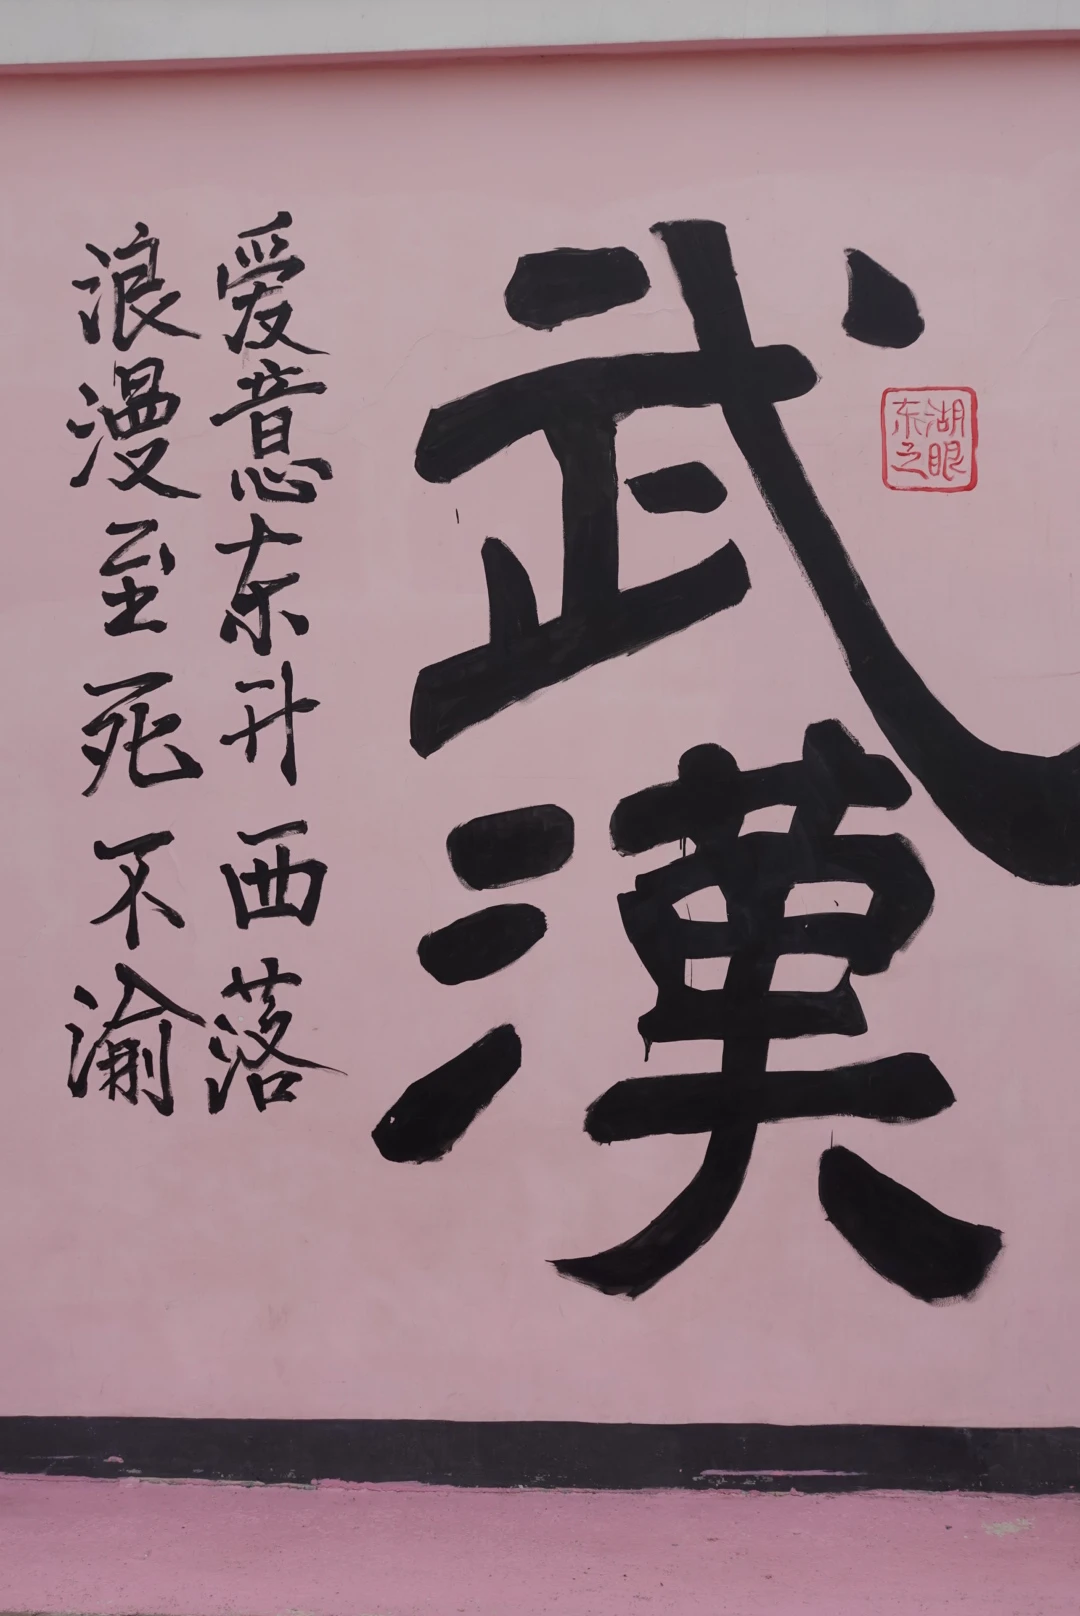 武漢
东湖
之眼
爱意东升西落
浪漫至死不渝